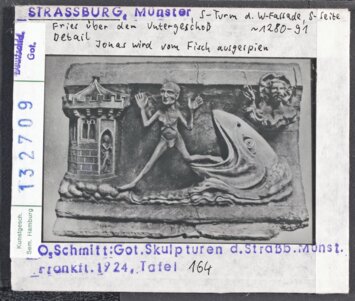 STRASSBURG, Münster, S-Turm d. W-Fassade, S-Seite
Fries über dem Untergeschoß ~1280-91
Detail
Jonas wird vom Fisch ausgespien
Deutschland
Got.
132709
Kunstgesch.
Sem. Hamburg
O.Schmitt:Got.Skulpturen d.Straßb.Münst.
Frankft.1924, Tafel 164